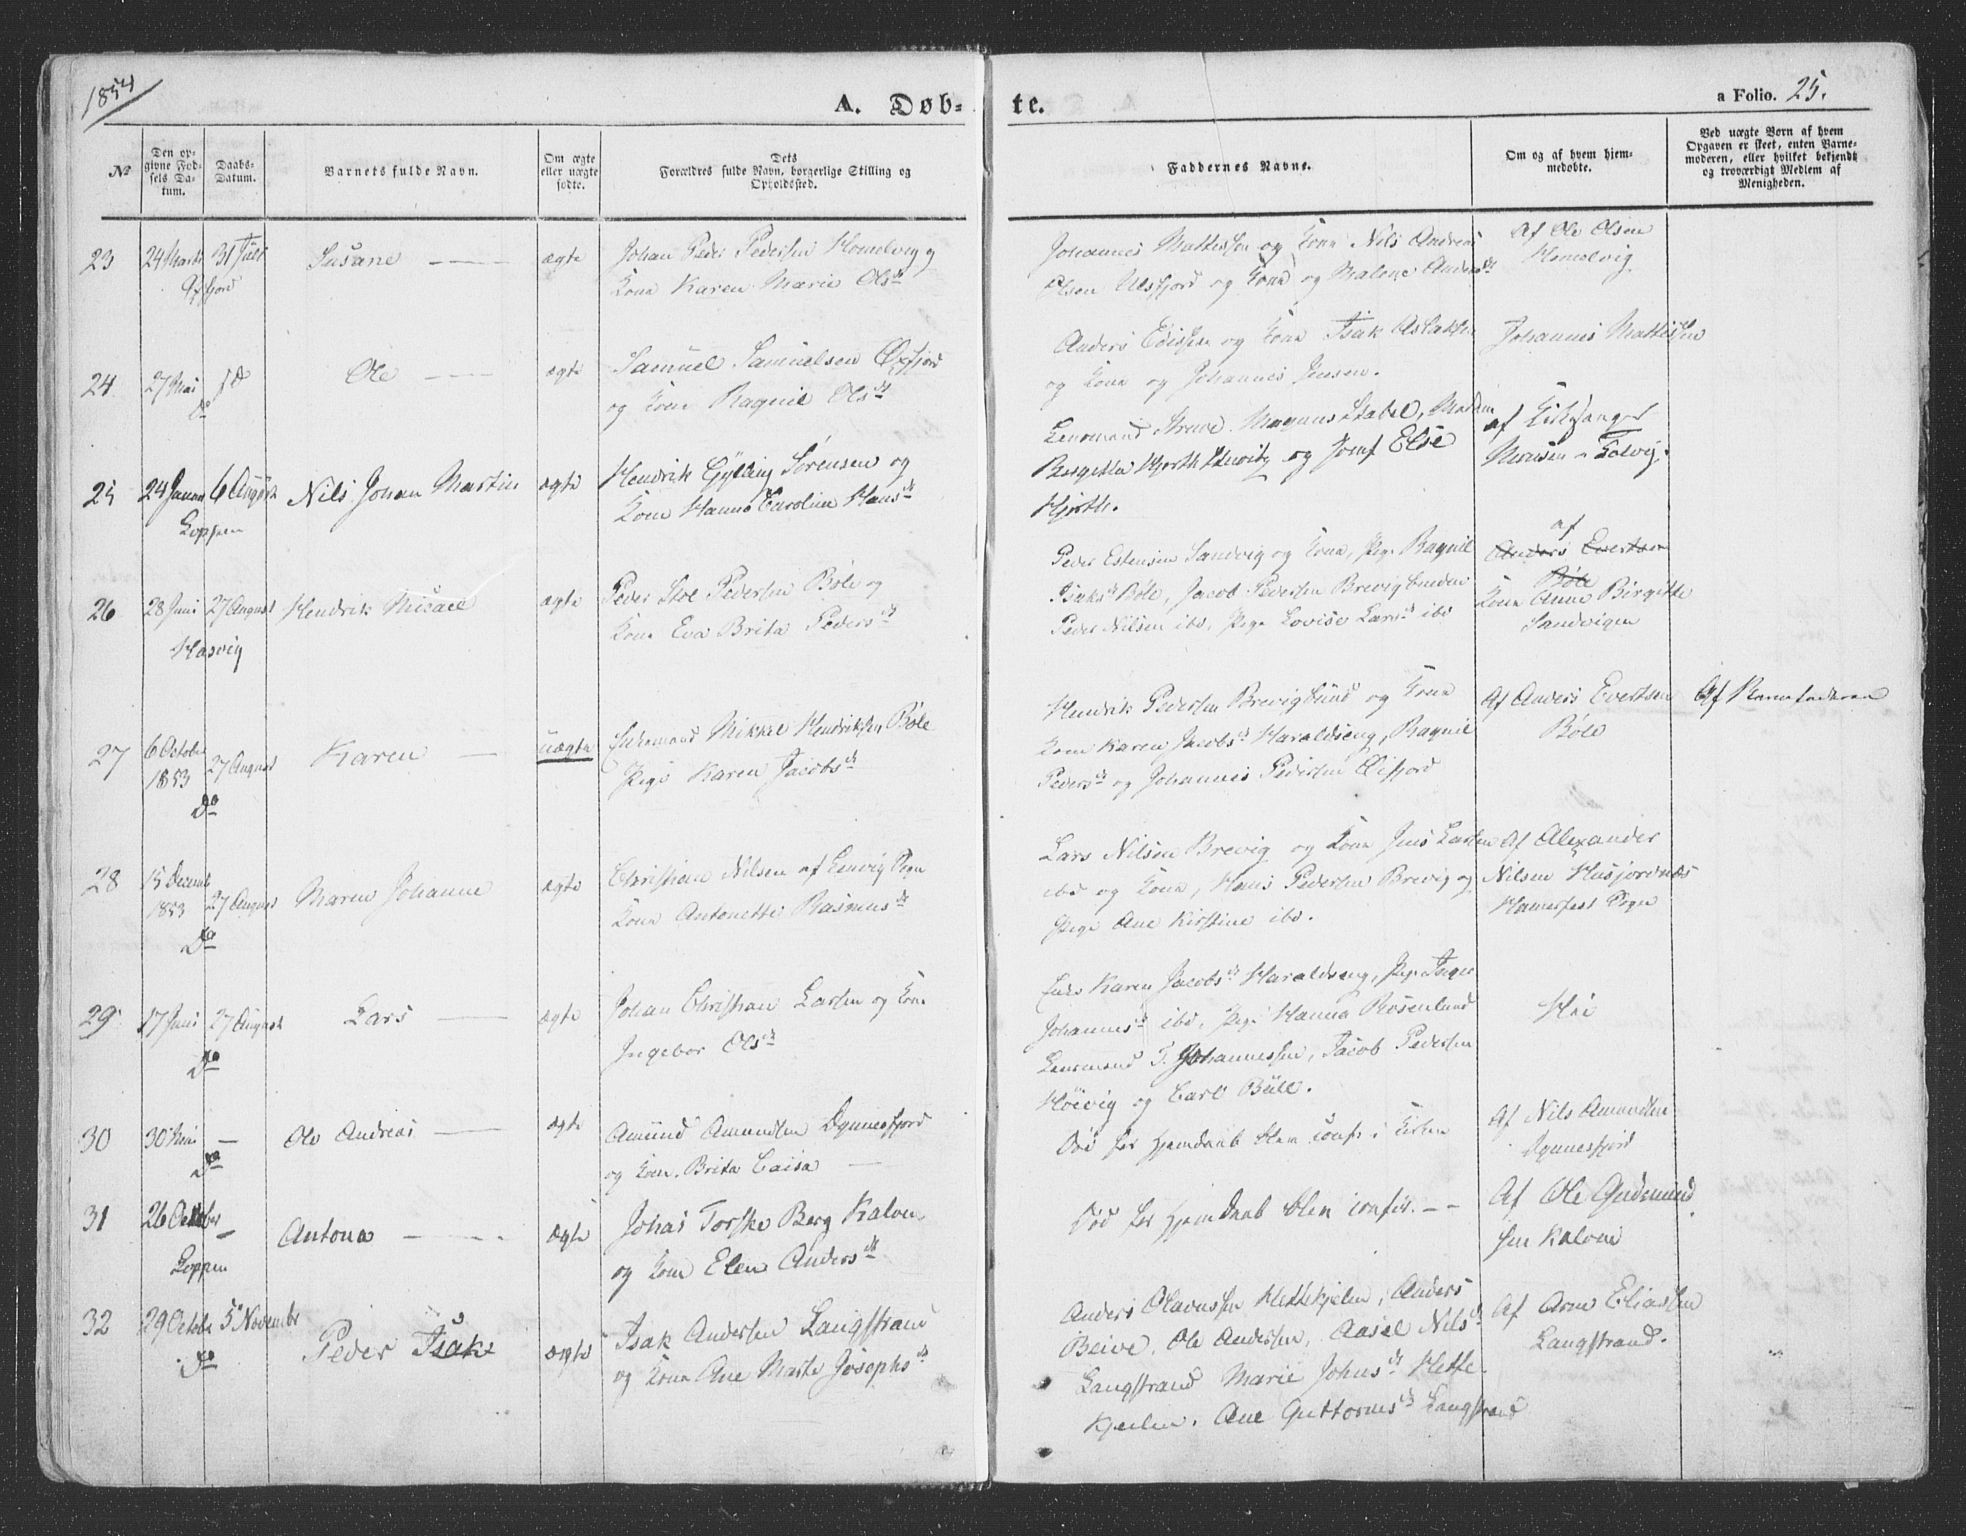 1854
A. Døb-
te.
a Folio. 25.
No
Den op-
givne Fød-
sels Da-
tum.
Daabs-
Datum.
Barnets fulde Navn.
Om ægte
eller uægte
fødte.
Dets
Forældres fulde Navn, borgerlige Stilling og
Opholdssted.
Faddernes Navne.
Om og af hvem hjem-
medøbte.
Ved uægte Børn af hvem
Opgaven er skeet, enten Barne-
moderen, eller hvilket bekjendt
og troværdigt Medlem af
Menigheden.
23 24 Marts 31 Juli Susane ægte Johan Peder Pedersen Homelvig og
Kone Karen Marie Olsd
Johannes Mattissen og Kone Nils Andreas
Olsen Ulsfjord og Kone og Malene Andersd
Af Ole Olsen
Homelvig
24 27 Mai do Ole ægte Samuel Samuelsen Øxfjord
do og Kone Ragnil Olsd
Anders Edissen og Kone Isak Aslaksen
og Kone og Johannes Jensen.
Johannes Mattissen
25 24 Januar 6 August Nils Johan Martin ægte Hendrik Gylling Sørensen og
Loppen Kone Hanna Carolina Hansd
Lensmand Struve. Magnus Stabel, Madam
Bergetta Hjorth og Jomf Else
Hjorth.
af Kirkesanger
Tolvig.
26 28 Juni 27 August Hendrik Misael ægte Peder Stoe Pedersen Bøle og
Hasvig Kone Eva Brita Pedersd
Peder Estensen Sandvig og Kone, Pige Ragnil
Isaksd Bøle, Jacob Pedersen Brevigbunden
Peder Nilsen ibd, Pige Lovise Larsd ibd
af
Anders Evertsen
Bøle
Kone Anne Birgitte
Sandvigen
27 6 October
1853 27 August Karen uægte Enkemand Mikkel Hendriksen Bøle
do Pige Karen Jacobsd
Hendrik Pedersen Brevigbund og Kone
Kone Karen Jacobsd Haraldseng, Ragnil
Pedersd og Johannes Pedersen
Af Anders Evertsen
Bøle
Af Barnefaderen
28 15 Decemb
1853 27 August Maren Johanne ægte Christian Nilsen af Lenvig Pgn
do Kone Antonette Rasmusd
Lars Nilsen Brevig og Kone Jens Larsen
ibd og Kone, Hans Pedersen Brevig og
Pige Ane Kirstine ibd.
Af Alexander
Nilsen Husjordnæs
Hamerfest Pregn
29 17 Juni 27 August Lars ægte Johan Christian Larsen og Kone
do Ingebor Olsd
Enke Karen Jacobsd Haraldseng, Pige Inger
Johannesd ibd, Pige Hanna Rosenlund
Lensmand T. Johannessen, Jacob Pedersen
Høivig og Carl Bull.
30 30 Mai — Ole Andreas ægte Amund Amundsen Dynnesfjord
do og Kone Brita Caisa
Død før Hjemdaab blev conf. i Kirken
Af Nils Amundsen
Dynnesfjord
31 26 October — Antona ægte Johas Torske Berg Kalven
Loppen og Kone Elen Andersd
Død før Hjemdaab blev confir.
Af Ole Gudmund
sen Kalven
32 29 October 5 Novembr Peder Isak ægte Isak Andersen Langstrand
do og Kone Ane Marta Josephsd
Anders Olaussen Hettekjelen, Anders
Beive, Ole Andersen, Aasel Nilsd
Langstrand Marie Johnsd Hette
kjeilen. Ane Guttormsd Langstrand
Af Arne Eliassen
Langstrand.